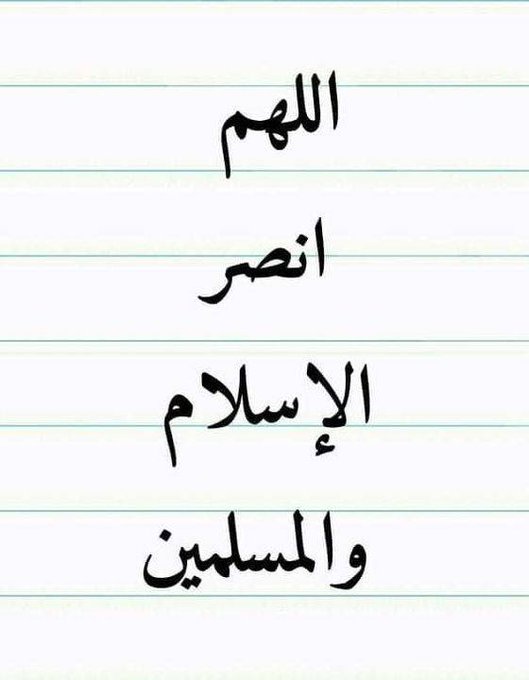 اللهم
انصر
الإسلام
والمسلمين